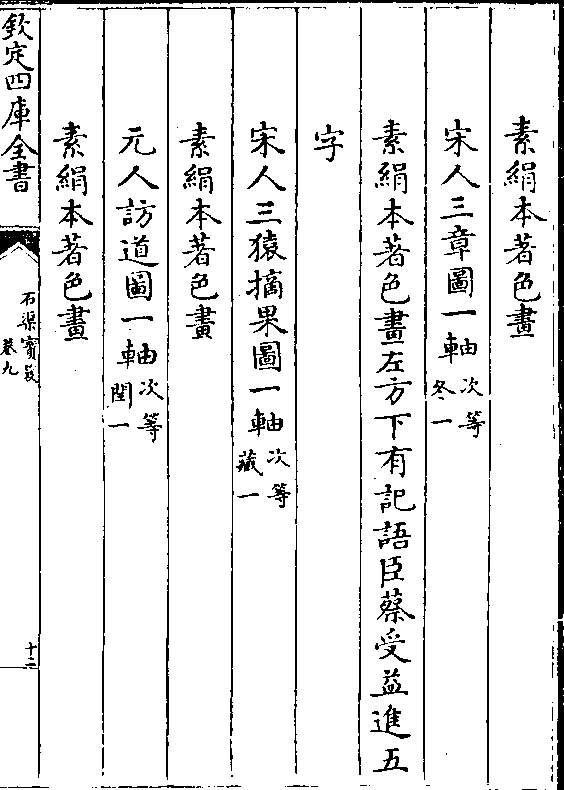 素絹本著色畫
宋人三章圖一軸次等冬一
素絹本著色畫左方下有記語臣蔡受益進五
字
宋人三猿摘果圖一軸次等藏一
素絹本著色畫
元人訪道圖一軸次等閏一
素絹本著色畫
欽定四庫全書
石渠寳笈
卷九
十二